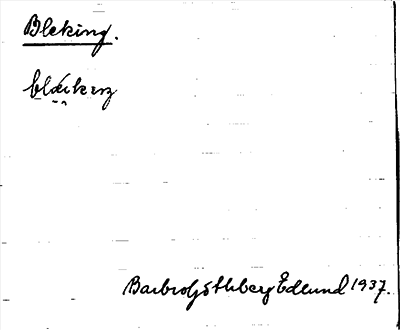 Bleking.
blǽikeŋ
Barbro Göthberg Edlund 1937.